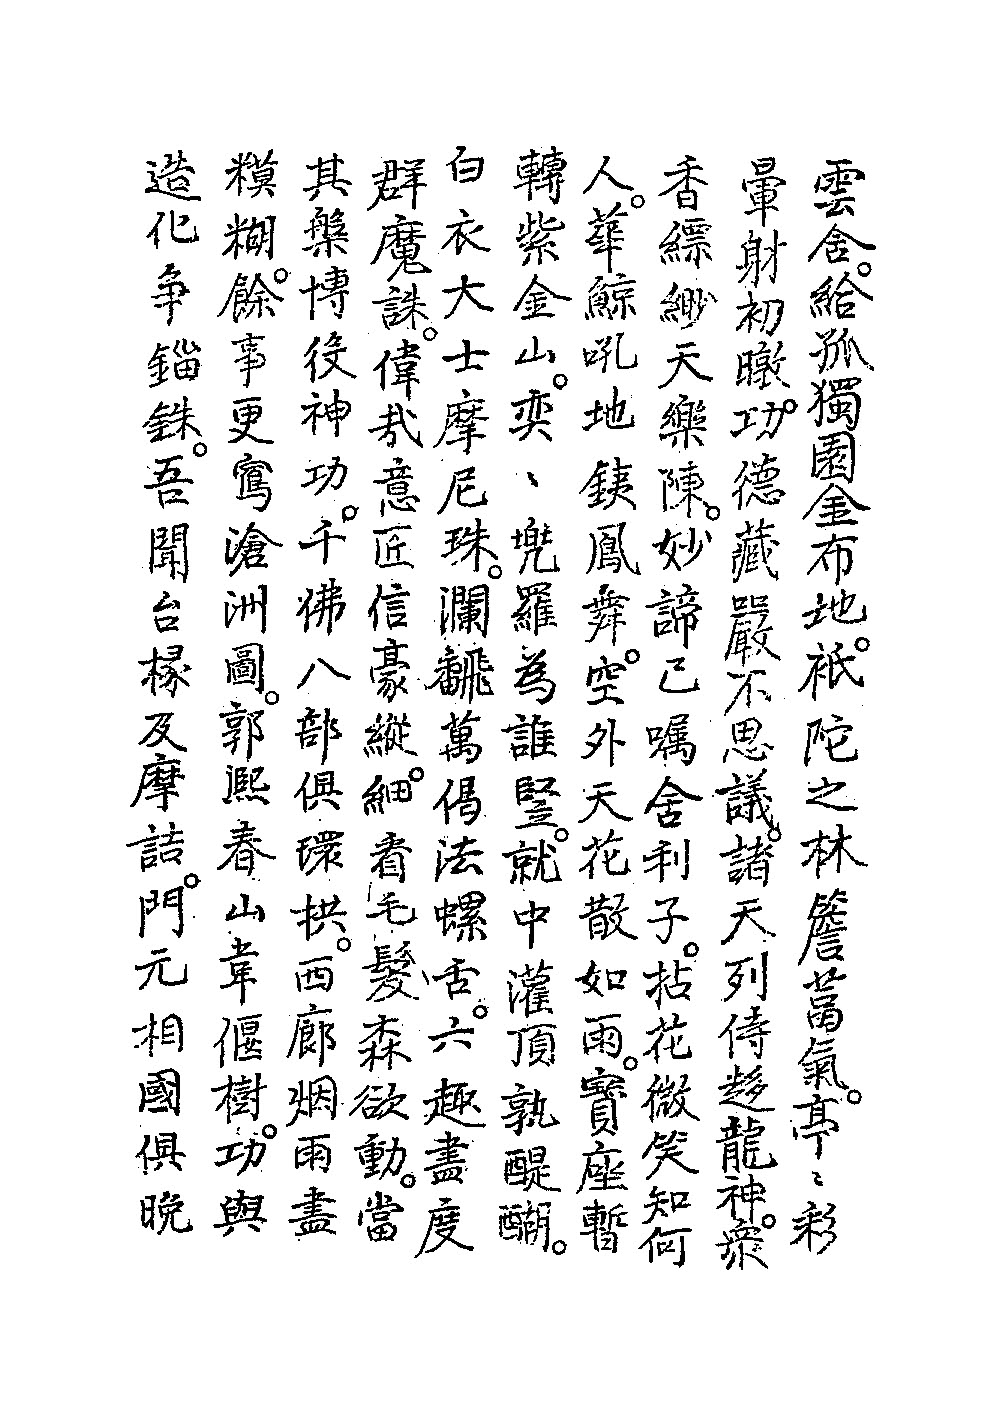 雲舍。給孤獨園金布地。祇陀之林簷蔔氣。亭〻彩
暈射初暾。功德藏嚴不思議。諸天列侍趍龍神。眾
香縹緲天樂陳。妙諦已嘱舍利子。拈花微笑知何
人。華鯨吼地銕鳳舞。空外天花散如雨。寶座暫
轉紫金山。奕〻兠羅為誰豎。就中灌頂孰醍醐。
白衣大士摩尼珠。瀾飜萬偈法螺舌。六趣盡度
群魔誅。偉哉意匠信豪縱。細看毛髮森欲動。當
其槃博役神功。千狒八部俱環拱。西廊烟雨盡
糢糊。餘事更寫滄洲圖。郭熙春山韋偃樹。功與
造化争錙銖。吾聞台椽及摩詰。門元相國俱晚